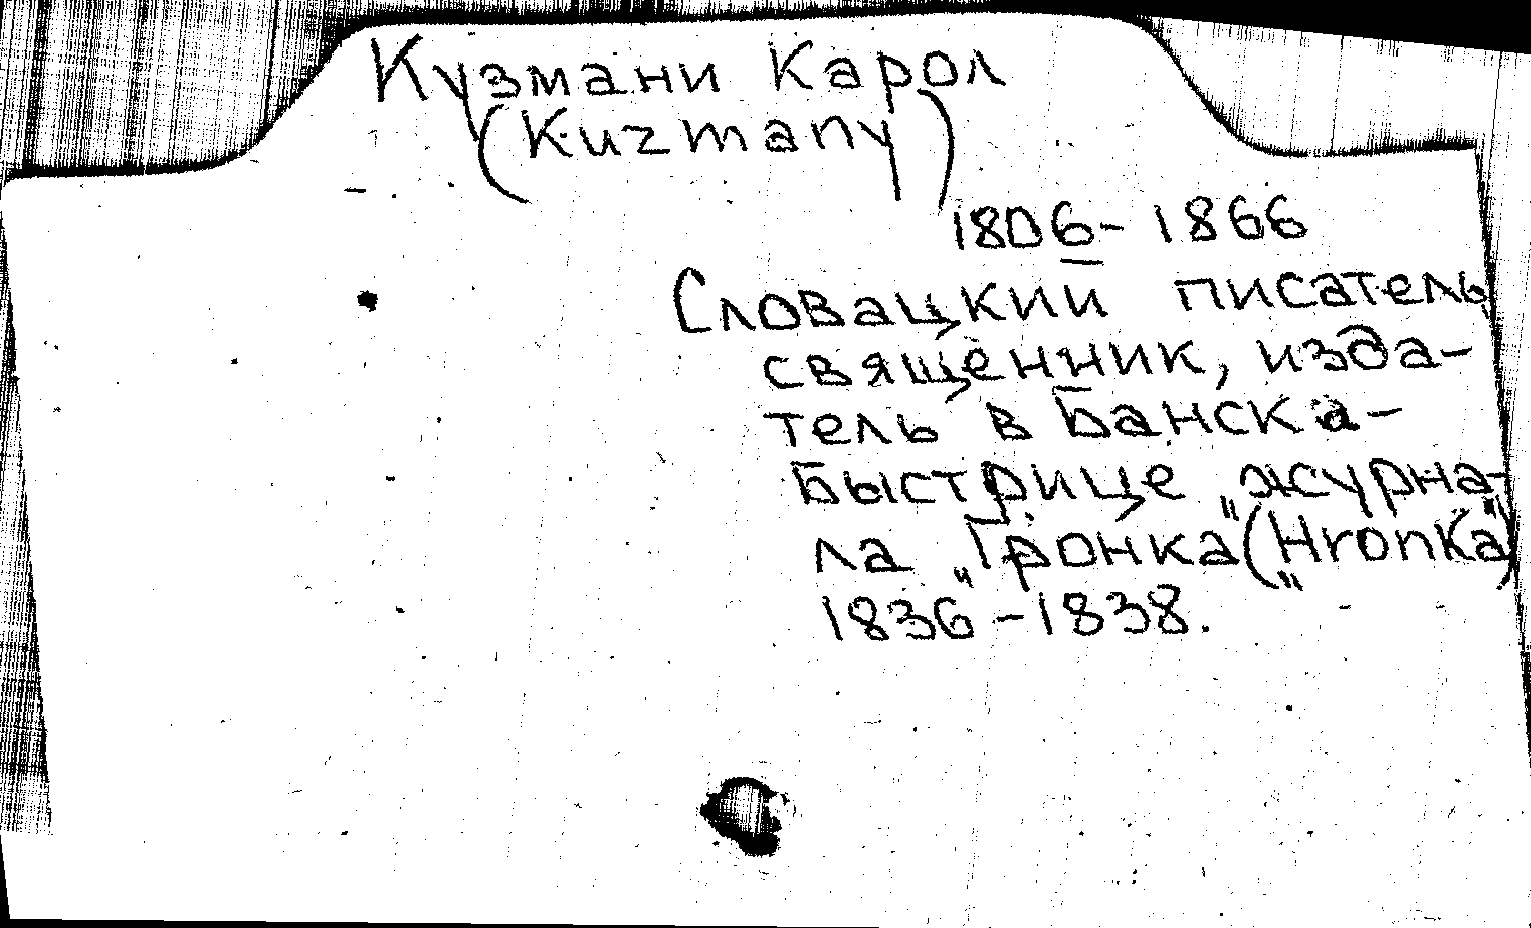 Кузмани Карол
(Kuzmany)
1806-1866
Словацкий писатель
священник, изда-
тель в Банска-
Быстрице журна-
ла „Гронка" („Hronka")
1836-1838.